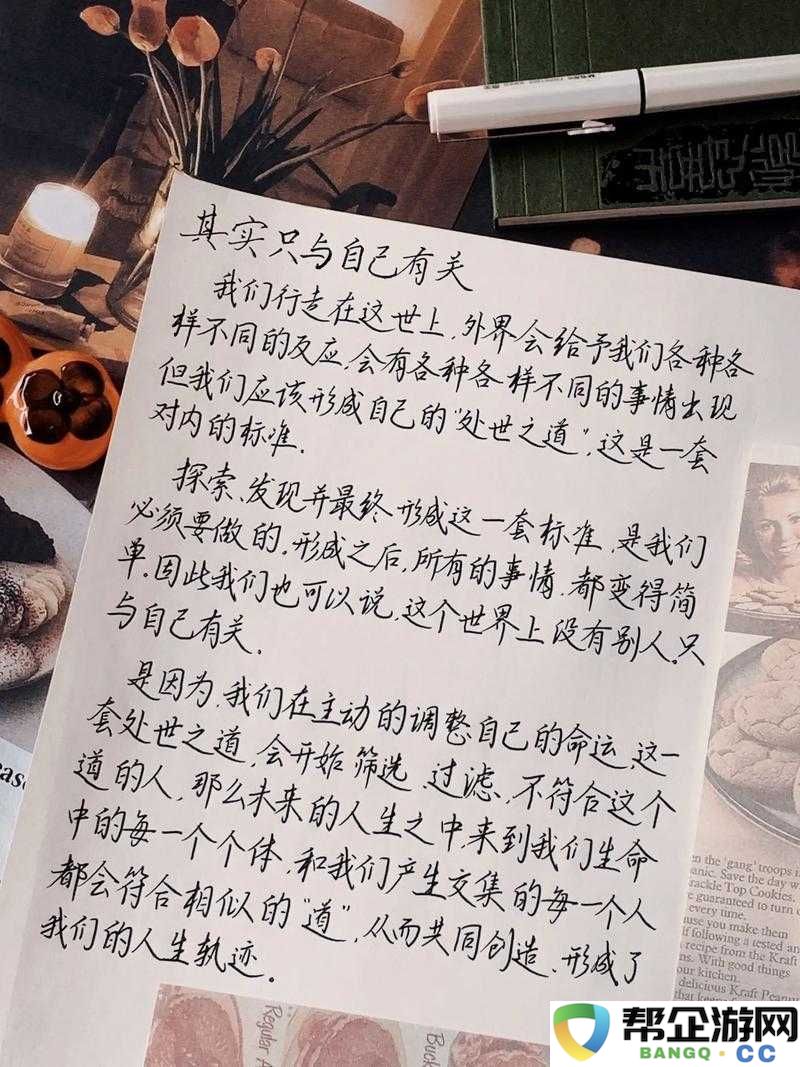 其实只与自己有关
我们行走在这世上,外界会给予我们各种各
样不同的反应,会有各种各样不同的事情出现
但我们应该形成自己的“处世之道”,这是一套
对内的标准.
探索、发现并最终形成这一套标准,是我们
必须要做的.形成之后,所有的事情,都变得简
单.因此我们也可以说,这个世界上没有别人.只
与自己有关.
是因为,我们在主动的调整自己的命运,这一
套处世之道,会开始筛选,过滤,不符合这个
道的人,那么未来的人生之中,来到我们生命
中的每一个个体,和我们产生交集的每一个人
都会符合相似的“道”,从而共同创造、形成了
我们的人生轨迹.
en the 'gang' troops in
anic. Save the day w
rackle Top Cookies.
e guaranteed to turn o
every time.
use you make them
f following a tested and
recipe from the Kraft
s. With good things
our kitchen.
delicious Kraft Peanu
that keeps
Regular
Buck
帮企游网
BANGQ.CC